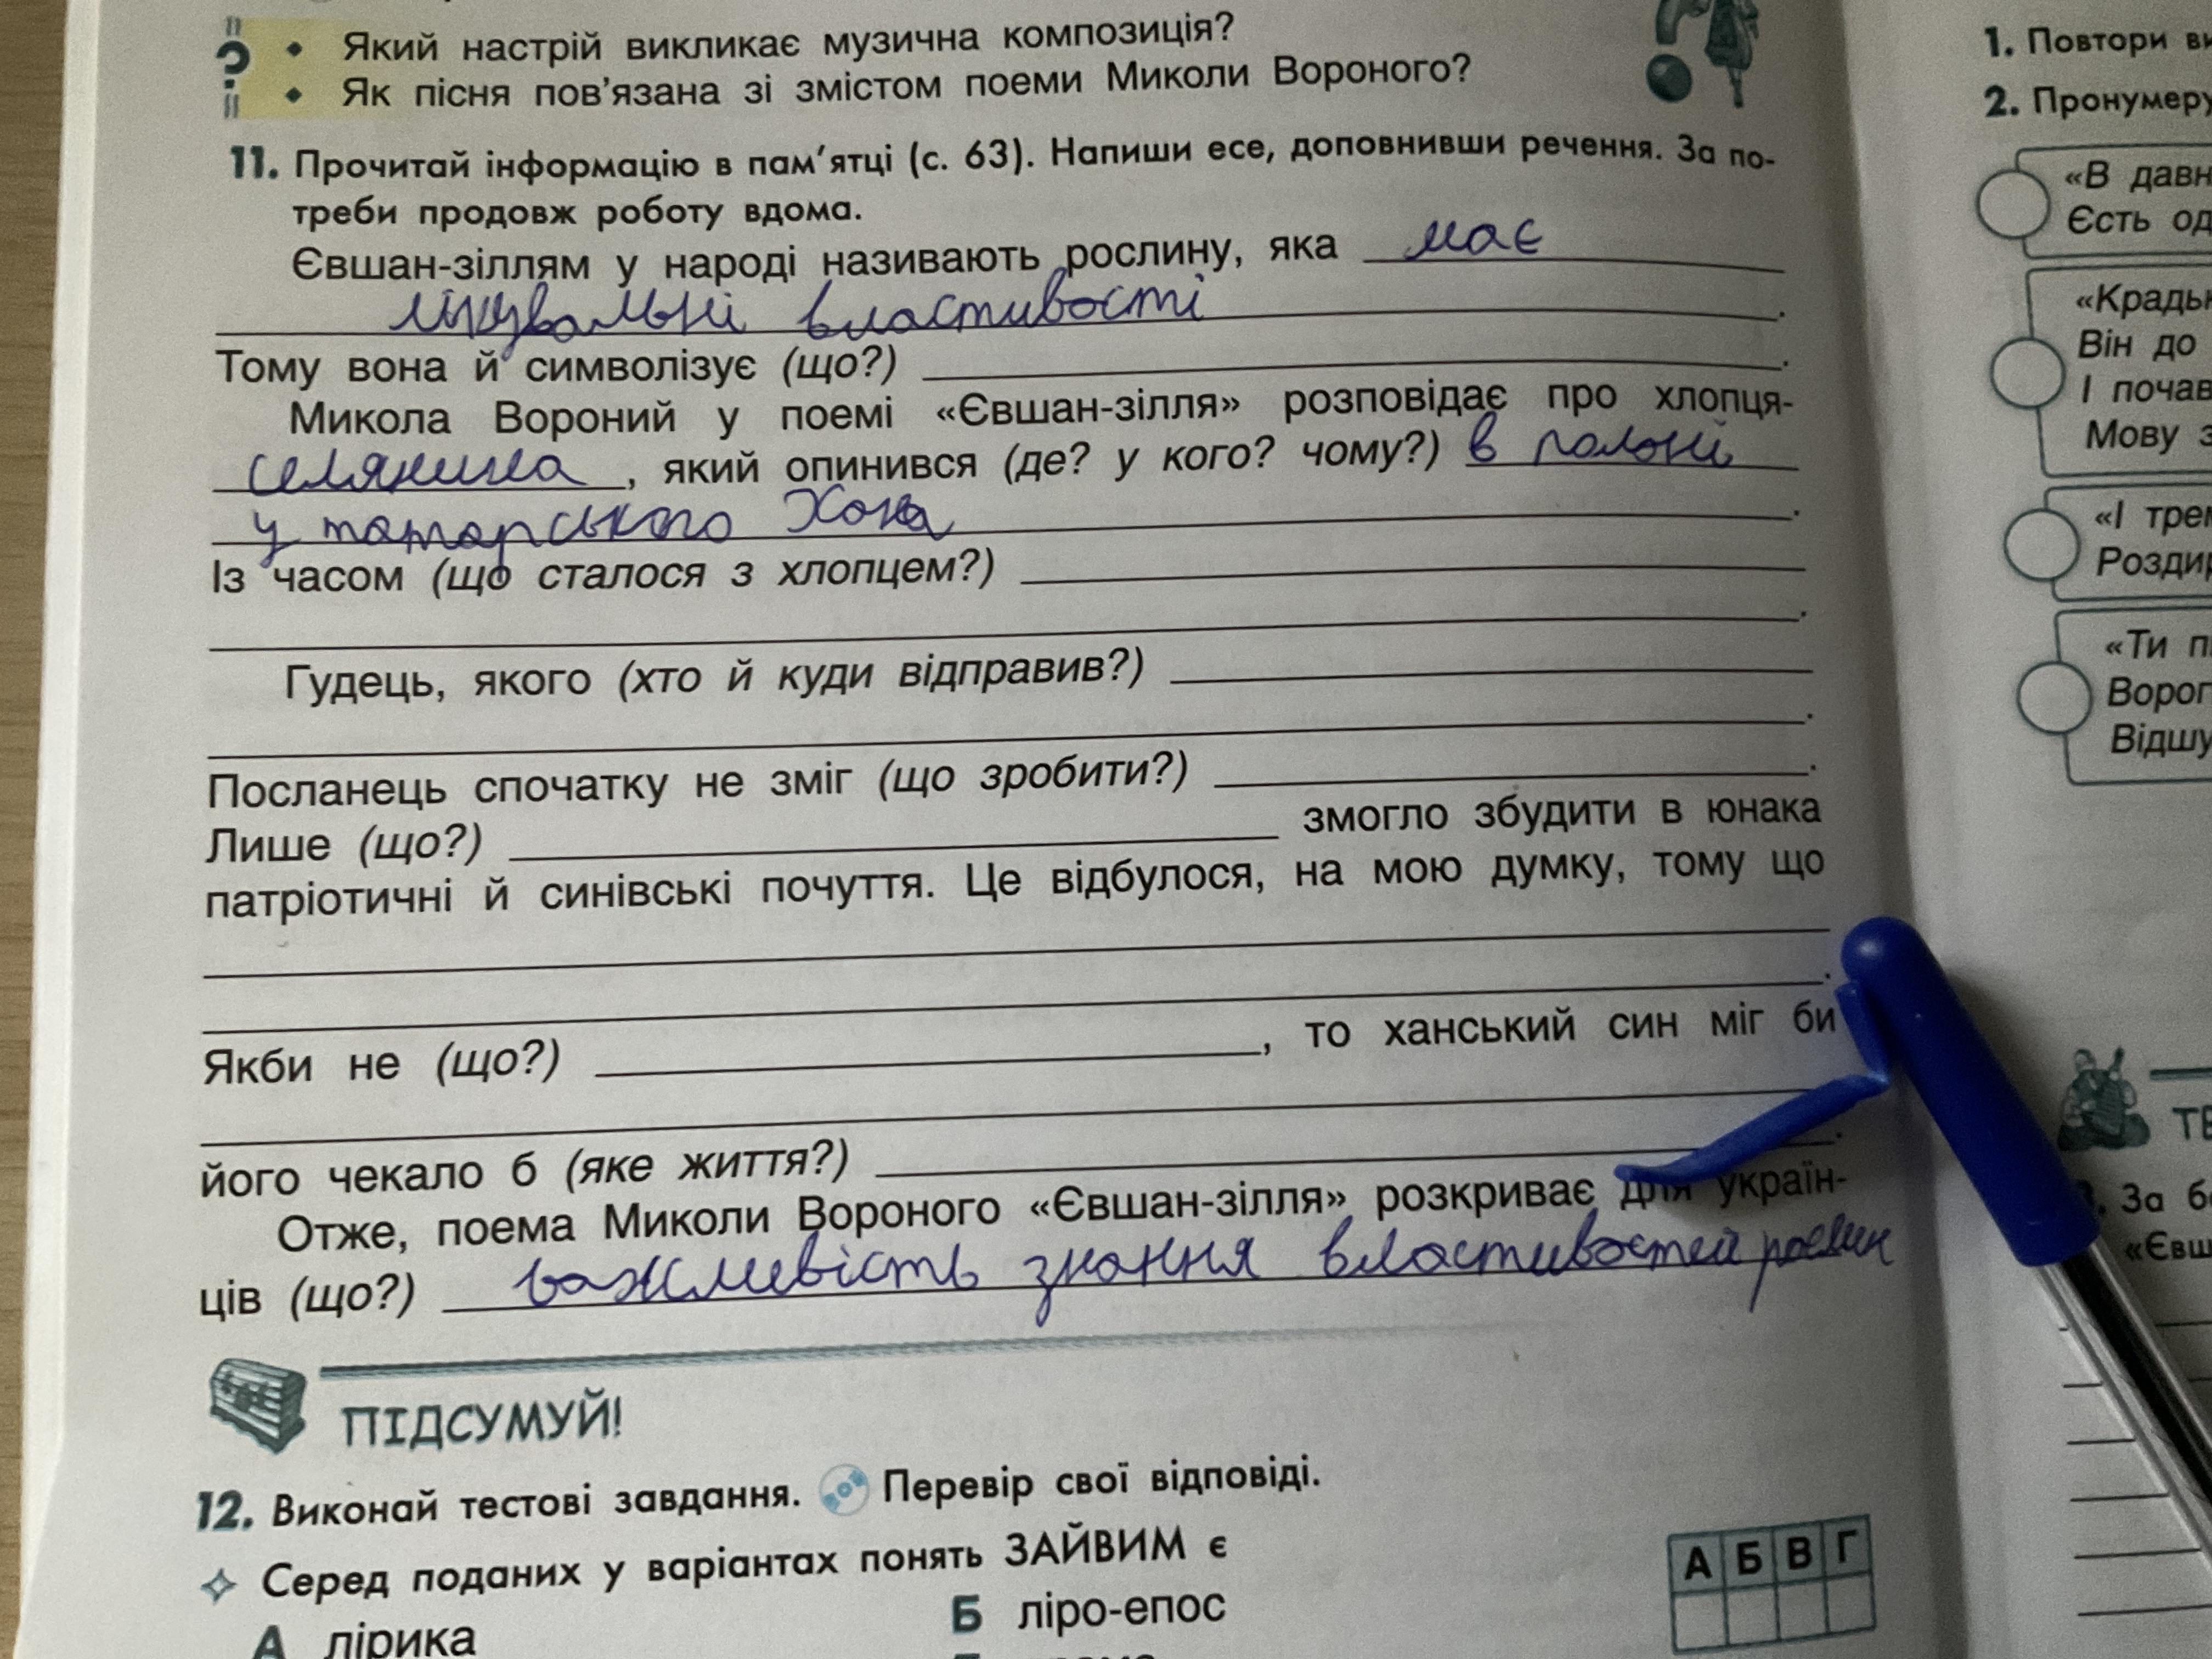 • Який настрій викликає музична композиція?
• Як пісня пов’язана зі змістом поеми Миколи Вороного?
11. Прочитай інформацію в пам’ятці (с. 63). Напиши есе, доповнивши речення. За по-
треби продовж роботу вдома.
Євшан-зіллям у народі називають рослину, яка має
лікувальні властивості.
Тому вона й символізує (що?)
Микола Вороний у поемі «Євшан-зілля» розповідає про хлопця-
селянина, який опинився (де? у кого? чому?) в полоні
у татарського Хана.
Із часом (що сталося з хлопцем?)
Гудець, якого (хто й куди відправив?)
Посланець спочатку не зміг (що зробити?)
Лише (що?) змогло збудити в юнака
патріотичні й синівські почуття. Це відбулося, на мою думку, тому що
Якби не (що?) , то ханський син міг би
його чекало б (яке життя?)
Отже, поема Миколи Вороного «Євшан-зілля» розкриває для україн-
ців (що?) важливість знання властивостей рослин
ПІДСУМУЙ!
12. Виконай тестові завдання. Перевір свої відповіді.
Серед поданих у варіантах понять ЗАЙВИМ є
А лірика
Б ліро-епос
А Б В Г
1. Повтори
2. Пронумеру
«В давн
Єсть од
«Крадьк
Він до
І почав
Мову з
«І трем
Роздир
«Ти п
Ворог
Відшу
За б
«Євш